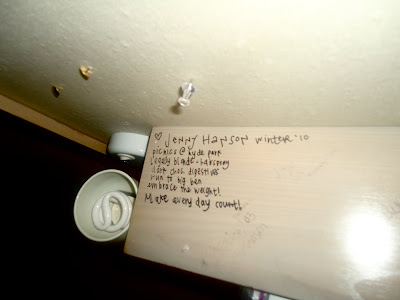 ♡ Jenny Hanson winter '10
picnics @ hyde park
legally blonde - hairspray
dark choc digestives
run to big ben
embrace the weight!
Make every day count!